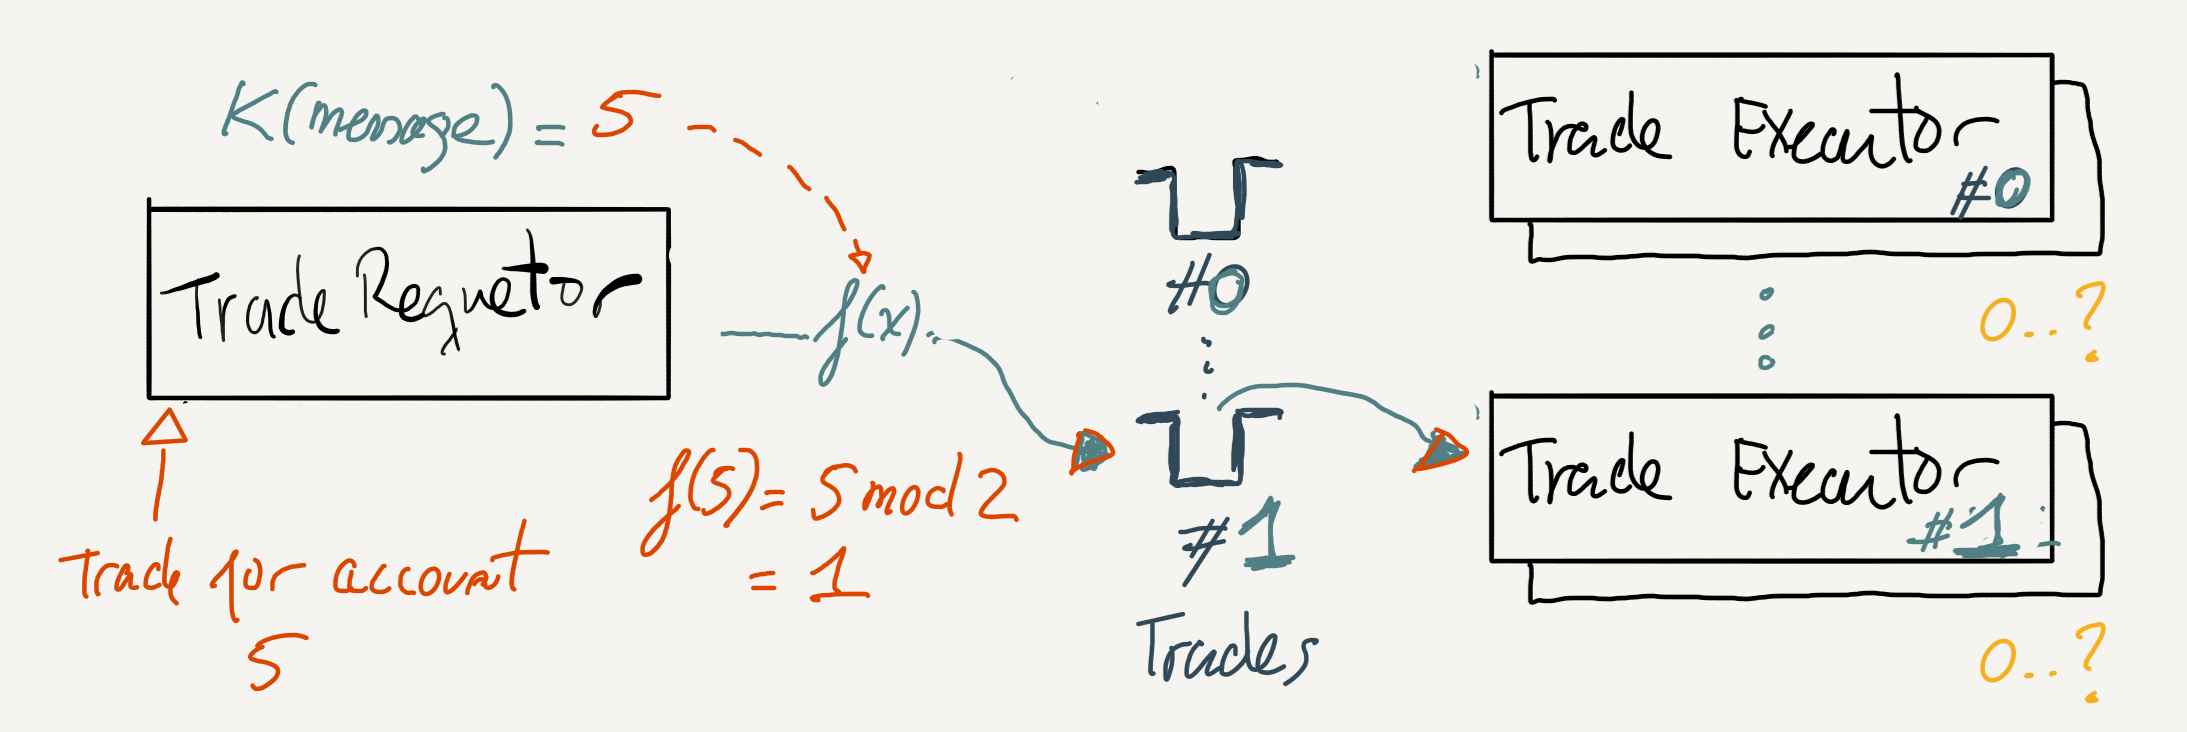 K(message) = 5
Trade Requetor
Trade for account
5
f(x)
f(5) = 5 mod 2
= 1
#0
#1
Trades
Trade Executor
#0
0..?
Trade Executor
#1
0..?